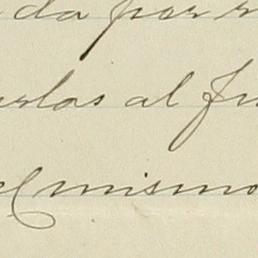 da por
arlas al
El mismo